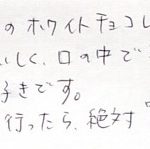 のホワイトチョコレ
いしく、口の中で
好きです。
行ったら、絶対